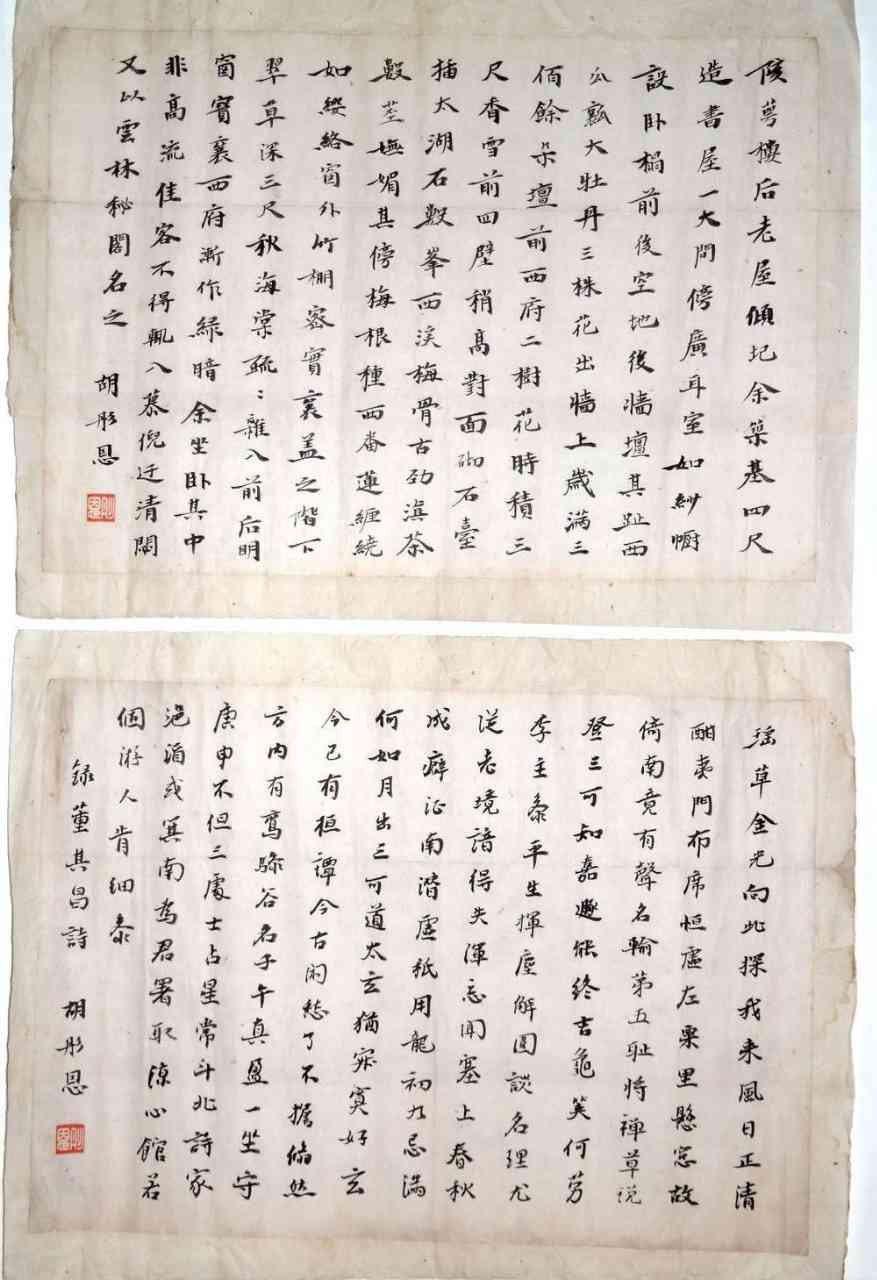 陔萼樓后老屋傾圮余築基四尺
造書屋一大間傍廣耳室如紗幮
設卧榻前後空地後牆壇其趾西
瓜瓤大牡丹三株花出牆上歲滿三
佰餘朵壇前西府二樹花時積三
尺香雪前四壁稍高對面砌石臺
插太湖石數峯西溪梅骨古劲滇茶
數莖嫵媚其傍梅根種西番蓮纏繞
如纓絡窗外竹棚密寳襄盖之階下
翠草深三尺秋海棠疏〻雜入前后明
窗寳襄西府漸作緑暗余坐卧其中
非高流佳客不得輒入慕倪迂清閟
又以雲林秘閣名之 胡彤恩
瑶草金光向此探我来風日正清
酣夷門布席恒虛左栗里懸窓故
倚南竟有聲名輸第五耻將禪草说
登三可知嘉遯能终吉龜筴何劳
李主叅平生揮麈解圍談名理尤
從老境諳得失渾忘聞塞上春秋
成癖 南潛虛祇用龍初九忌滿
何如月出三可道太玄猶寂寞好玄
今已有桓譚今古闲愁了不擔翛然
方内有鸞驂谷名子午真盈一坐守
庚申不但三處士占星常斗北詩家
 或箕南為君署取 心館若
個游人肯细叅
録董其昌詩 胡彤恩